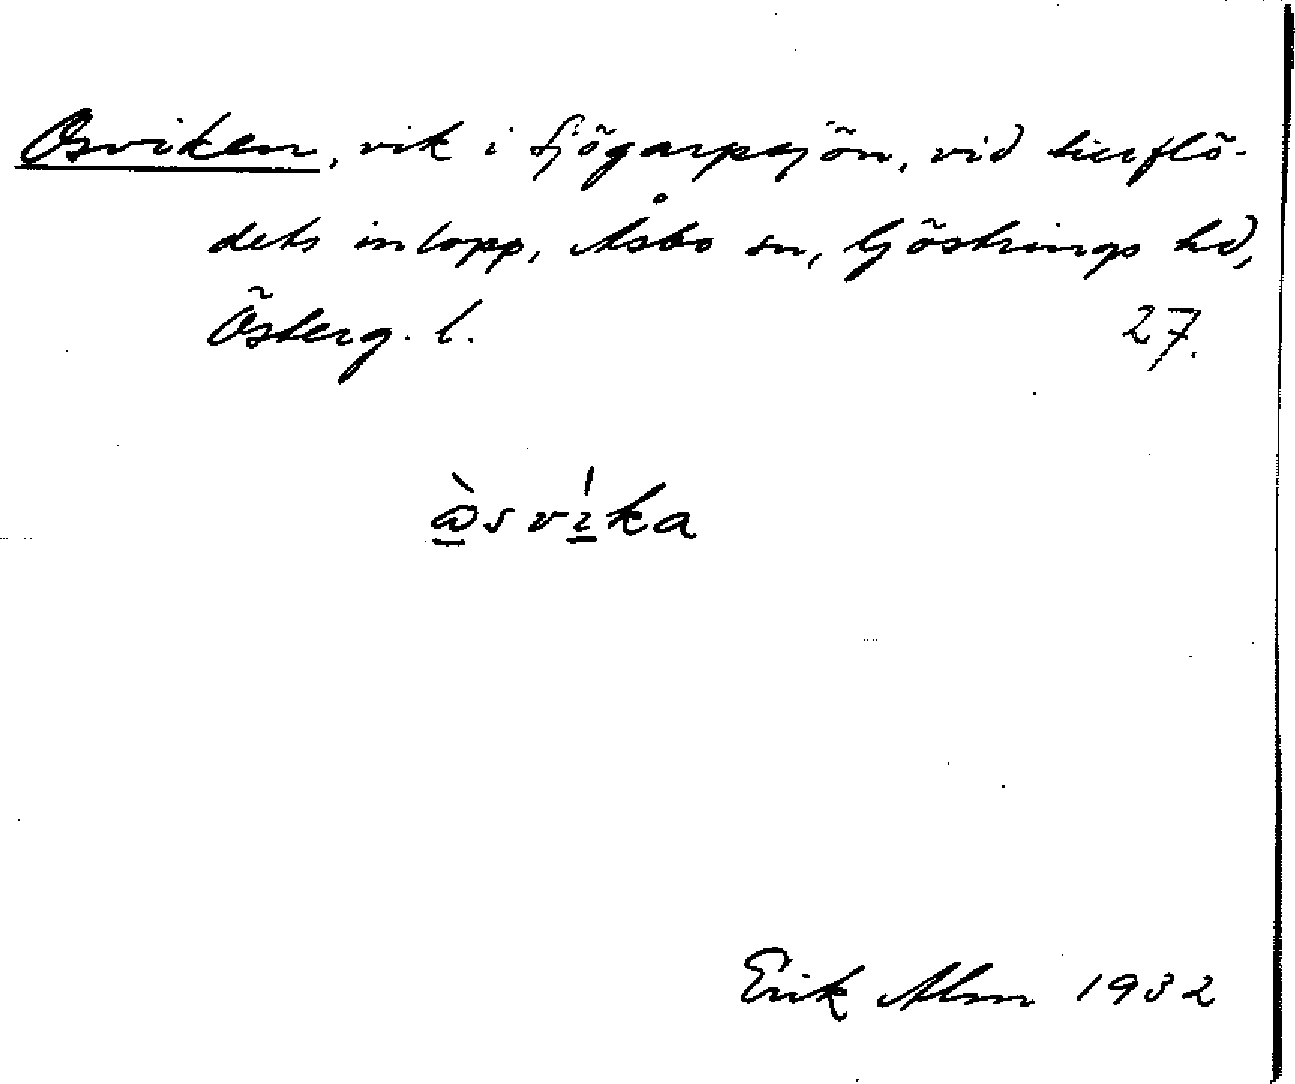 Osviken, vik i Sjögarpsjön, vid tillflö-
dets inlopp, Åsbo sn, Göstrings hd,
Österg. l. 27.
vika
Erik Alm 1932